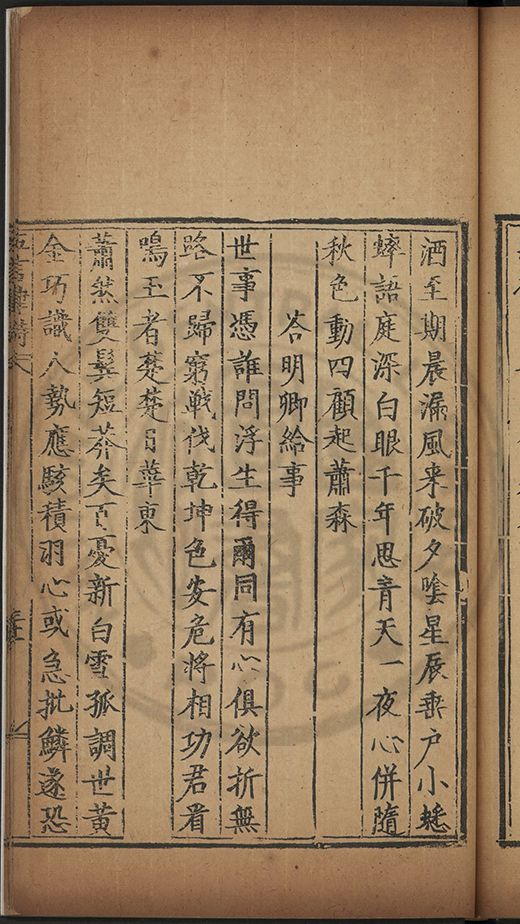 酒至期晨漏風来破夕陰星辰垂户小蟋
蟀語庭深白眼千年思青天一夜心併隨
秋色動四顧起蕭森
荅明卿給事
世事憑誰問浮生得爾同有心俱欲折無
路不歸窮戰伐乾坤色安危將相功君看
鳴玉者楚楚日華東
蕭然雙鬓短莽矣百憂新白雪孤調世黄
金巧識人勢應駭積羽心或急批鱗遂恐